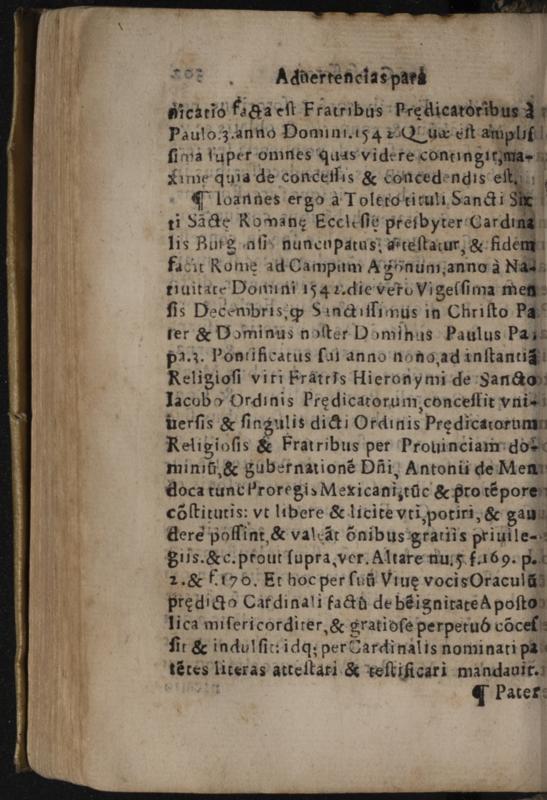 Aduertencias para
nicatiō facta est Fratribus Prędicatoribus à
Paulo.3.anno Domini.1542. Quæ est amplis
sima super omnes quas videre contingit, ma-
xime quia de concessis & concedendis est.
¶ Ioannes ergo à Toleto tituli Sancti Six
ti Sāctę Romanę Ecclesię presbyter Cardina
lis Burg nsis nuncupatus, attestatur, & fidem
facit Romę ad Campum Agonum, anno à Na-
tiuitate Domini 1542. die vero Vigessima men
sis Decembris, ꝙ Sanctissimus in Christo Pa
ter & Dominus noster Dominus Paulus Pa,
pa.3. Pontificatus sui anno nono, ad instantiā
Religiosi viri Fratris Hieronymi de Sancto
Iacobo Ordinis Prędicatorum, concessit vni-
uersis & singulis dicti Ordinis Prędicatorum
Religiosis & Fratribus per Prouinciam do-
miniū, & gubernationē Dñi, Antonii de Men
doca tunc Proregis Mexicani, tūc & pro tēpore
cōstitutis: vt libere & licite vti, potiri, & gau
dere possint, & valeāt ōnibus gratiis priuile-
giis. &c. prout supra, ver. Altare nu. 5. f. 169. p.
2. & f. 170. Et hoc per suū Viuę vocis Oraculū
prędicto Cardinali factū de bēignitate Aposto
lica misericorditer, & gratiose perpetuó cōces
sit & indulsit: idq; per Cardinalis nominati pa
tētes literas attestari & testificari mandauit.
¶ Pater